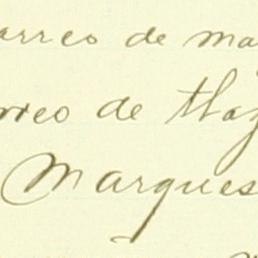 arreo de ma
rreo de tlaz
Marques